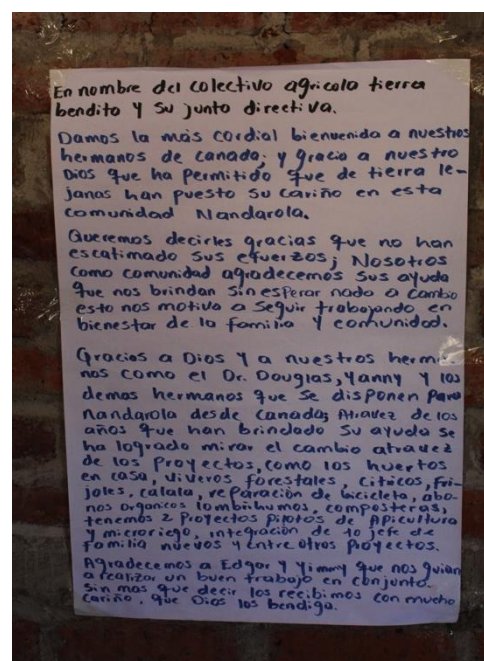 En nombre del colectivo agricola tierra
bendito y su junto directiva.
Damos la más cordial bienvenida a nuestros
hermanos de canada; y gracia a nuestro
Dios que ha permitido que de tierra le-
janas han puesto su cariño en esta
comunidad Nandarola.
Queremos decirles gracias que no han
escatimado sus efuerzos; Nosotros
como comunidad agradecemos sus ayuda
que nos brindan sin esperar nada a cambio
esto nos motiva a seguir trabajando en
bienestar de la familia y comunidad.
Gracias a Dios y a nuestros herma-
nos como el Dr. Douglas, Yanny y los
demas hermanos que se disponen para
nandarola desde canada; Atravez de los
años que han brindado su ayuda se
ha logrado mirar el cambio atravez
de los proyectos, como los huertos
en casa, viveros forestales, citicos, fri-
joles, calala, reparación de bicicleta, abo-
nos organicos lombrihumos, composteras,
tenemos 2 proyectos pilotos de Apicultura
y microriego, integración de 10 jefe de
familia nuevos y entre otros proyectos.
Agradecemos a Edgar y Yimmy que nos guian
a realizar un buen trabajo en conjunto.
Sin mas que decir los recibimos con mucho
cariño, que Dios los bendiga.